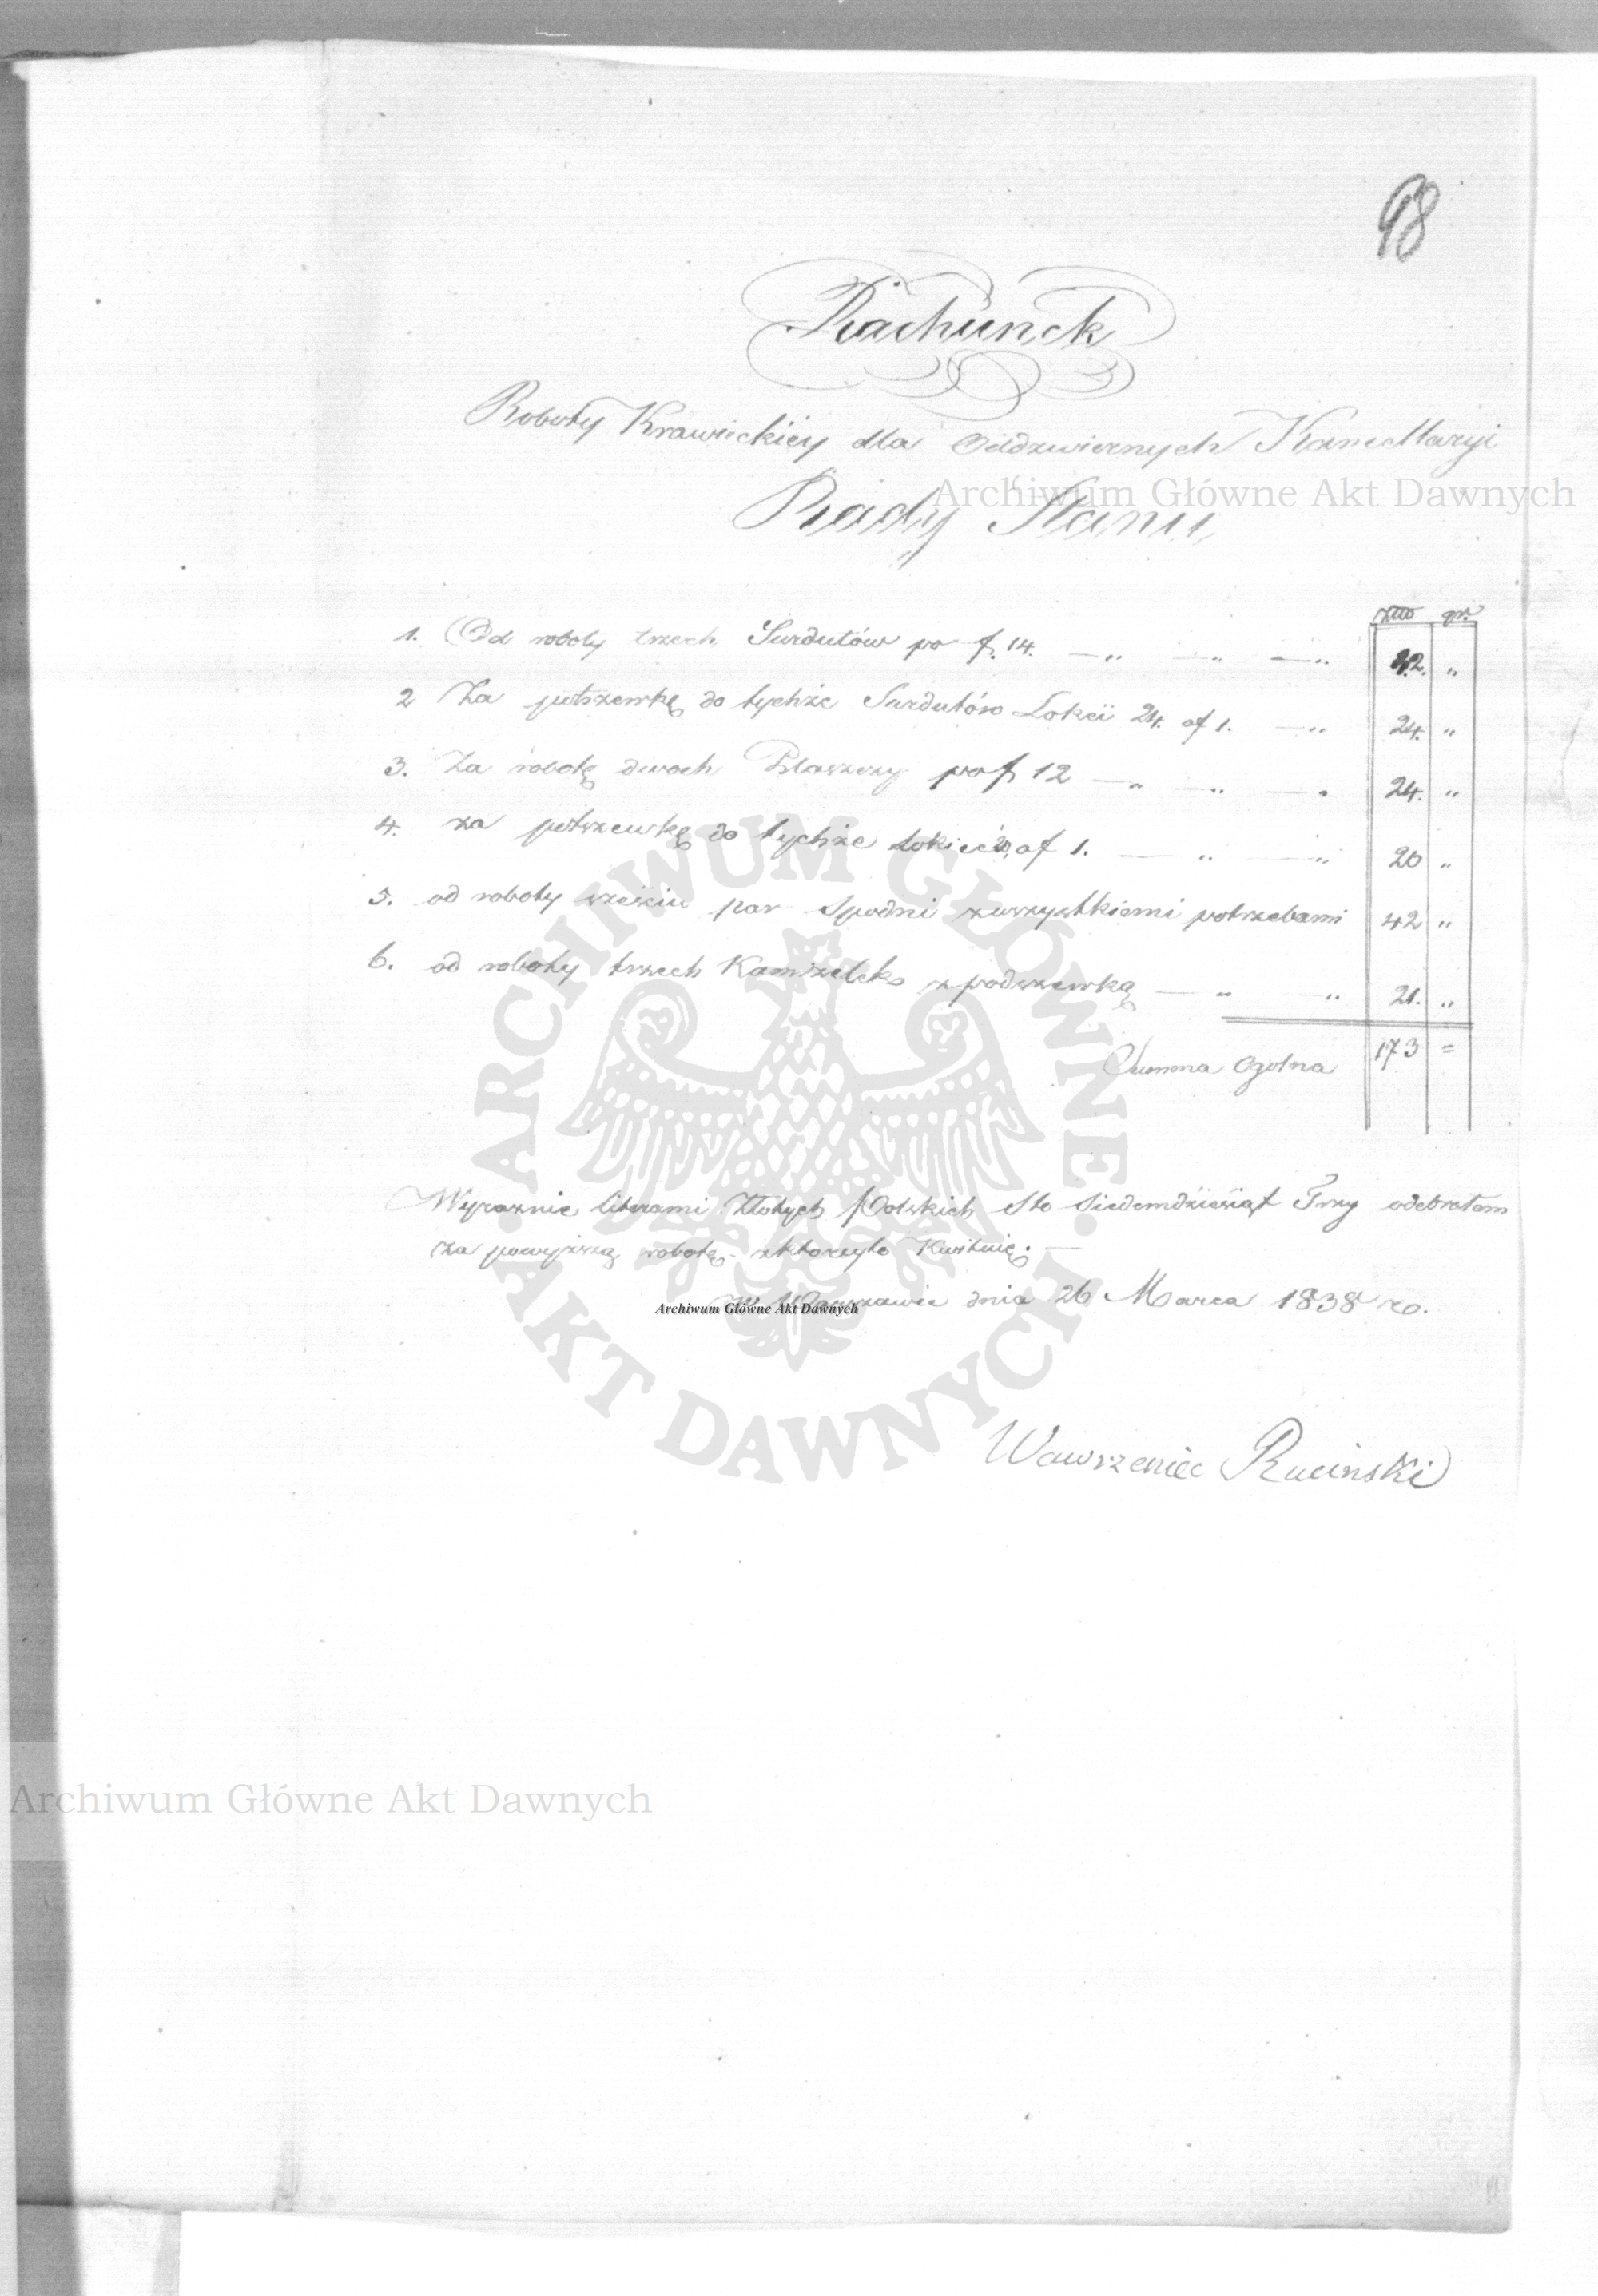 98
Rachunek
Roboty Krawieckiey dla Oddzwiernych Kancellaryi
Archiwum Główne Akt Dawnych
Rady Stanu
gr.
1. Od roboty trzech Surdutów po f. 14. 42. "
2 Za potszewkę do tychże Surdutów Lokci 24. af 1. 24. "
3. Za robotę dwoch Płaszczy po f 12 24. "
4. za potszewkę do tychże Lokiec 20, af 1. 20 "
5. od roboty sześciu par Spodni zwszystkiemi potrzebami 42 "
6. od roboty trzech Kamizelek z podszewką 21. "
Summa Ogolna 173 =
Wyraznie literami Złotych Polskich Sto Siedemdziesiąt Trzy odebrałem
za powyższą robotę z ktorzyto Kwituię. —
w Warszawie dnia 26 Marca 1838 ro.
Archiwum Główne Akt Dawnych
Wawrzeniec Ruciński
Archiwum Główne Akt Dawnych
ARCHIWUM GŁÓWNE
AKT DAWNYCH